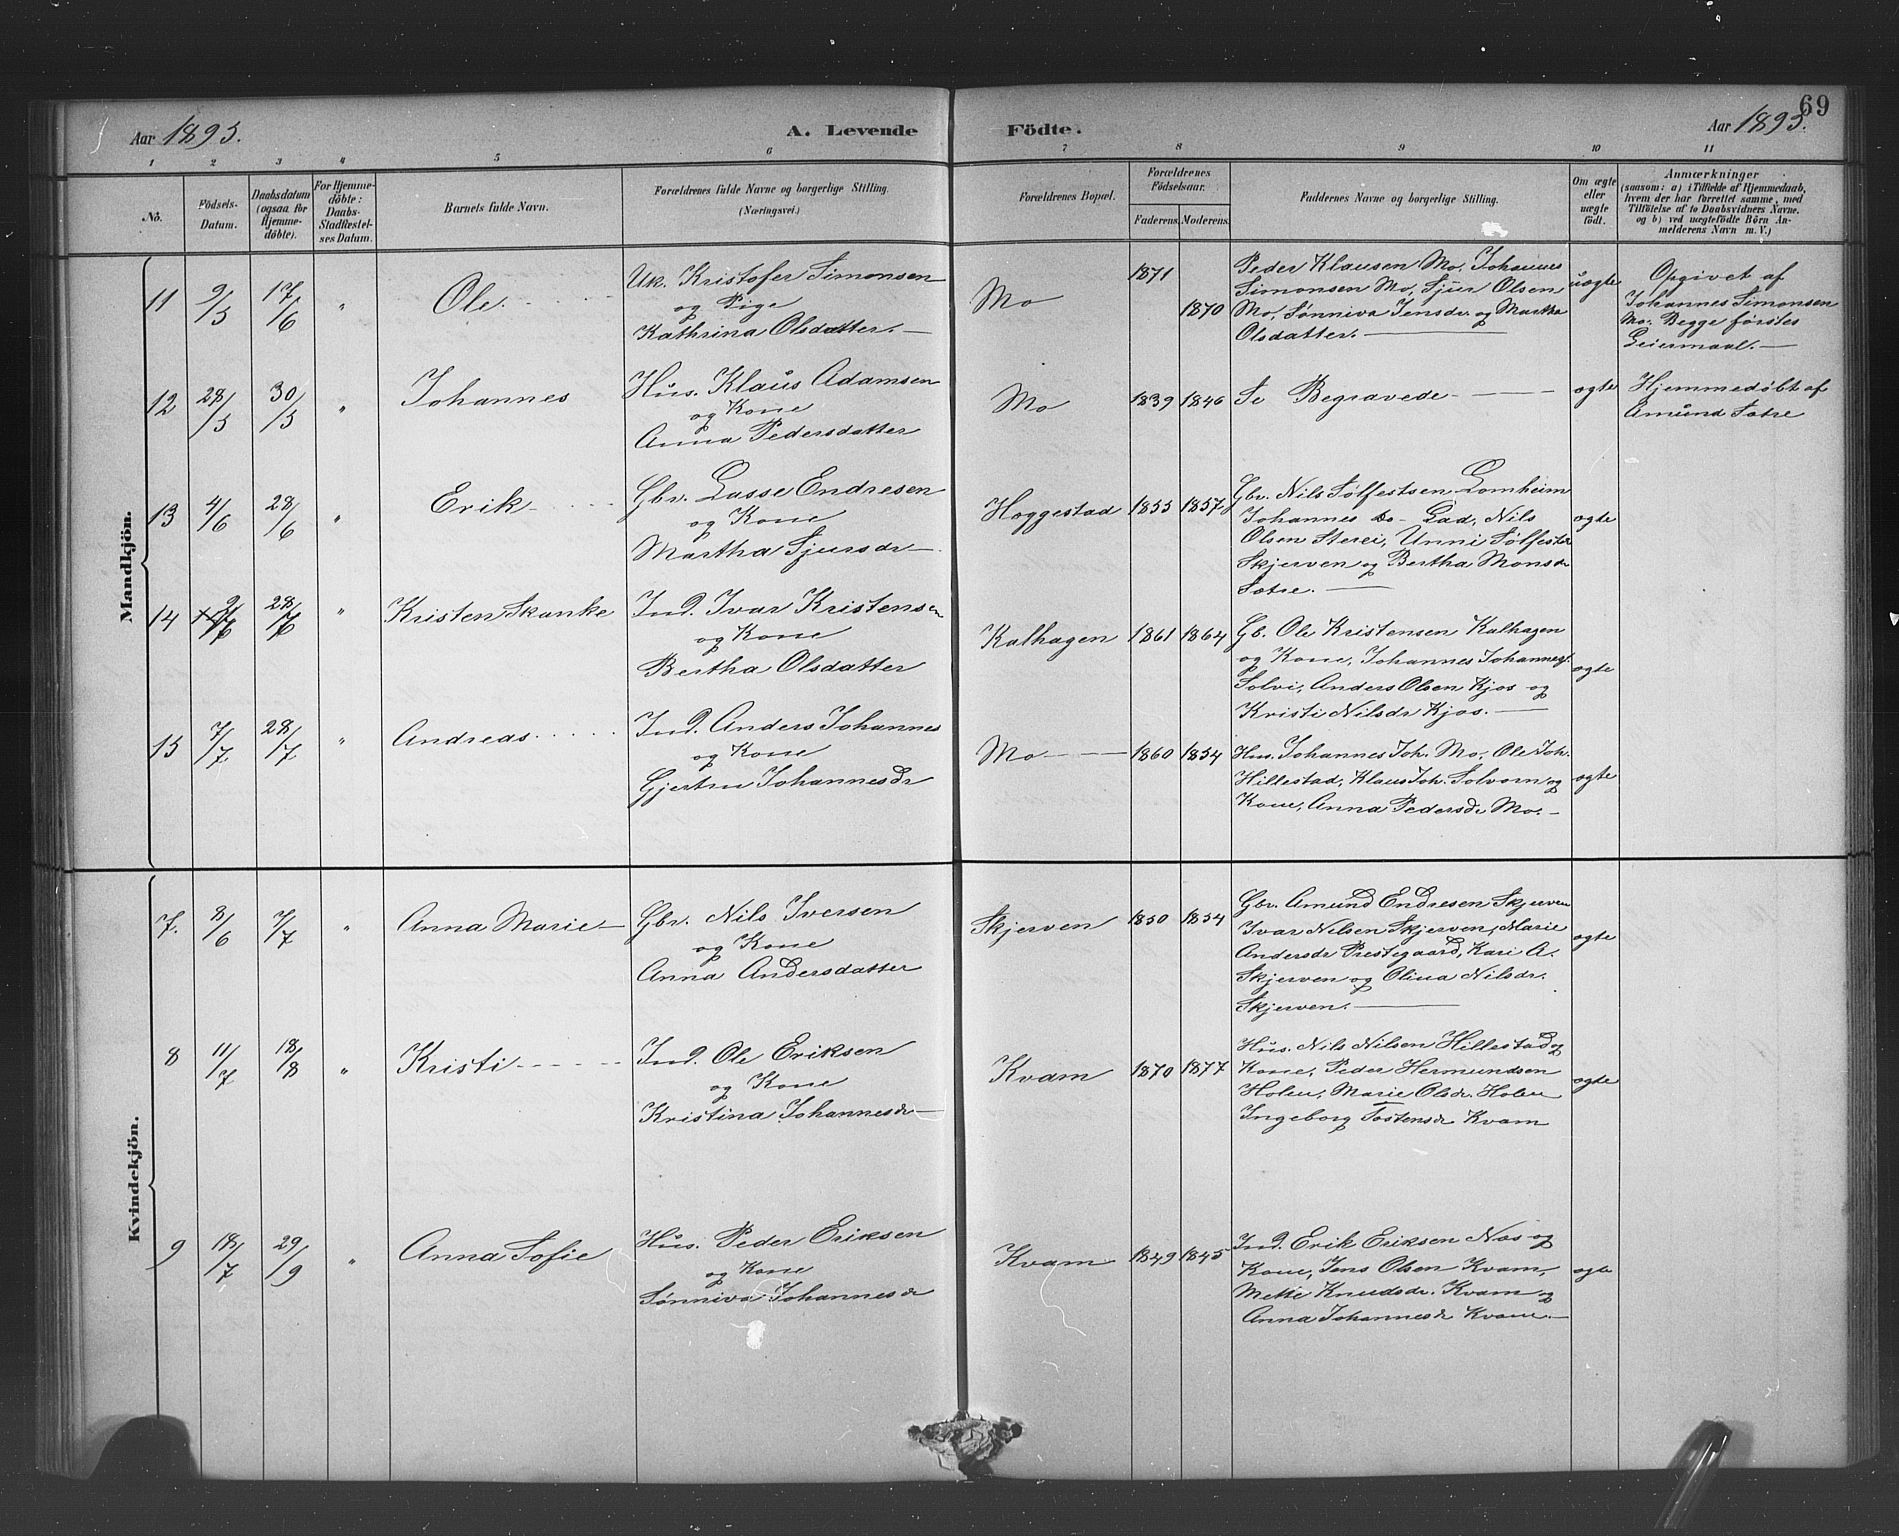 69
Aar 1893. A. Levende Födte. Aar 1893.
1 2 3 4 5 6 7 8 9 10 11
No. Födsels-Datum. Daabsdatum (ogsaa for Hjemme-döbte). For Hjemme-döbte: Daabs-Stadfæstel-ses Datum. Barnets fulde Navn. Forældrenes fulde Navne og borgerlige Stilling. (Næringsvei.) Forældrenes Bopæl. Forældrenes Födselsaar. Faderens. Moderens. Faddernes Navne og borgerlige Stilling. Om ægte eller uægte födt. Anmærkninger (saasom: a) i Tilfælde af Hjemmedaab, hvem der har forrettet samme, med Tilföielse af to Daabsvidners Navne. og b) ved uægtefödte Börn An-melderens Navn m. V.)
Mandkjön.
11 9/5 17/6 " Ole.
Uk. Kristofer Simonsen
og Pige
Kathrina Olsdatter.
Mo 1871 1870
Peder Klausen Mo, Johannes
Simonsen Mo, Sjur Olsen
Mo, Sønniva Jensdr. og Martha
Olsdatter.
uægte
Opgivet af
Johannes Simonsen
Mo. Begge førstes
Leiermaal.
12 28/5 30/5 " Johannes
Hus. Klaus Adamsen
og Kone
Anna Pedersdatter
Mo 1839 1846 Se Begravede ægte
Hjemmedøbt af
Amund Sætre
13 4/6 28/6 " Erik
Gbr. Lasse Endresen
og Kone
Martha Sjursdr
Hæggestad 1855 1857
Gbr. Nils Sølfestsen Lomheim
Johannes Do Lad, Nils
Olsen Sterei, Unni Sølfestdr
Skjerven og Bertha Monsdr
Sætre.
ægte
14 28/6 " Kristen Skanke
Ind. Ivar Kristensen
og Kone
Bertha Olsdatter
Kalhagen 1861 1864
Gb. Ole Kristensen Kalhagen
og Kone, Johannes Johannes.
Solvi, Anders Olsen Kjos og
Kristi Nilsdr Kjos.
ægte
15 7/7 28/7 " Andreas
Ind. Anders Johannes
og Kone
Gjertru Johannesdr
Mo 1860 1854
Hus. Johannes Joh. Mo, Ole Joh.
Hillestad, Klaus Joh. Solvorn og
Kone, Anna Pedersdr Mo.
ægte
Kvindekjön.
7. 8/6 7/7 " Anna Marie
Gbr. Nils Iversen
og Kone
Anna Andersdatter
Skjerven 1850 1854
Gbr. Amund Endresen Skjerven
Ivar Nilsen Skjerven, Marie
Andersdr Prestegaard, Kari A.
Skjerven og Olina Nilsdr.
Skjerven.
ægte
8 11/7 18/8 " Kristi
Ind. Ole Eriksen
og Kone
Kristina Johannesdr
Kvam 1870 1877
Hus. Nils Nilsen Hillestad og
Kone, Peder Hermundsen
Holen, Marie Olsdr. Holen
Ingeborg Tostensdr Kvam
ægte
9 18/7 29/9 " Anna Sofie
Hus. Peder Eriksen
og Kone
Sønniva Johannesdr
Kvam 1849 1845
Ind. Erik Eriksen Næs og
Kone, Jens Olsen Kvam,
Mette Knudsdr. Kvam og
Anna Johannesdr Kvam.
ægte